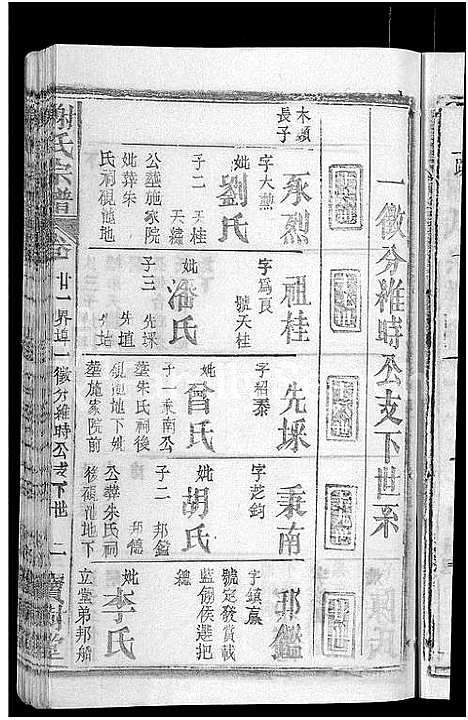 一徵分維時公支下世系
木穎
長子
承烈
字大勲
妣劉氏
子二 天桂
天繡
公塟施家院
妣葬朱
氏祠硯龍地
祖桂
字爲良
號天桂
妣潘氏
子三 先埰
先埴
先培
先埰
字紹泰
妣曾氏
子一秉南公
塟朱氏祠後
硯龍地下妣
塟施家院前
秉南
字芝鈞
妣胡氏
子二 邦鑑
邦德
公葬朱氏祠
後硯龍地下
邦鑑
字鎮嬴
號定發賞戴
藍翎侯選把
總
妣李氏
立堂弟邦船
謝氏宗譜
廿一界埠一徵分維時公支下世 二
寶樹堂